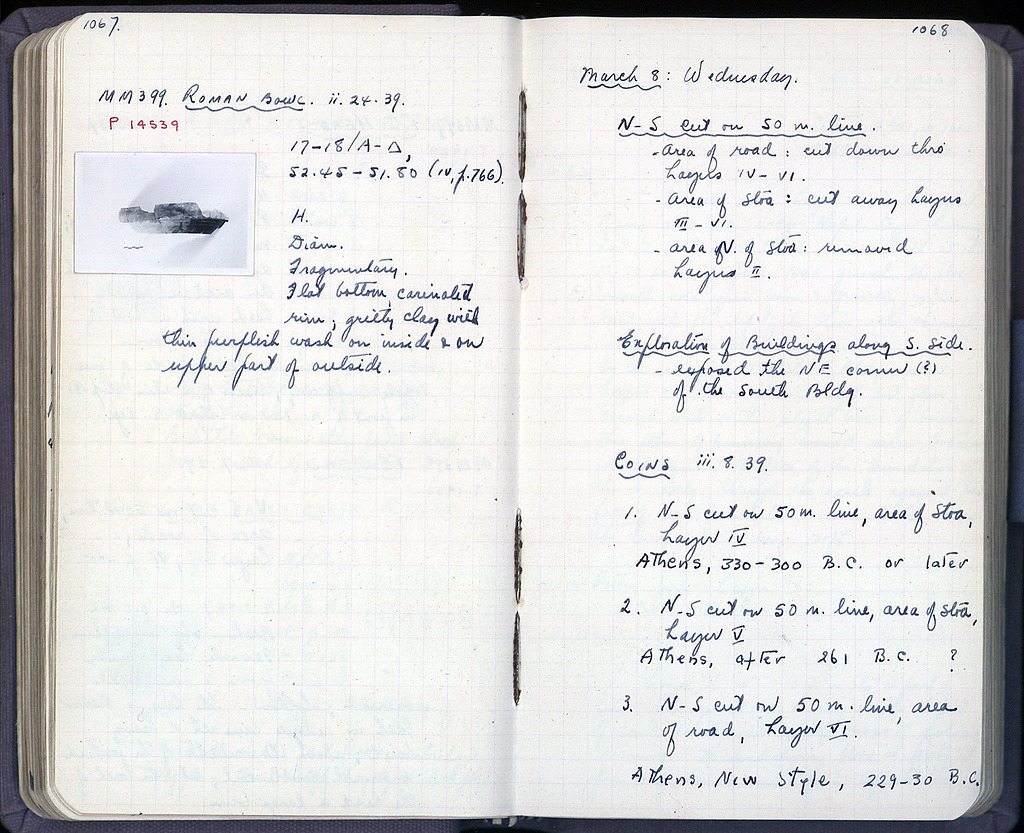 1067.
MM399. ROMAN BOWL. ii. 24. 39.
P 14539
17-18/Α-Δ,
52.45-51.80 (IV, p. 766).
H.
Diam.
Fragmentary.
Flat bottom, carinated
rim; gritty clay with
thin purplish wash on inside & on
upper part of outside.
1068
March 8: Wednesday.
N-S cut on 50 m. line.
- area of road: cut down thro
Layers IV-VI.
- area of Stoa: cut away Layers
III-VI.
- area N. of Stoa: removed
Layer II.
Exploration of Buildings along S. Side.
- exposed the NE corner (?)
of the South Bldg.
COINS iii. 8. 39.
1. N-S cut on 50 m. line, area of Stoa,
Layer IV
Athens, 330-300 B.C. or later
2. N-S cut on 50 m. line, area of Stoa,
Layer V
Athens, after 261 B.C. ?
3. N-S cut on 50 m. line, area
of road, Layer VI.
Athens, New Style, 229-30 B.C.